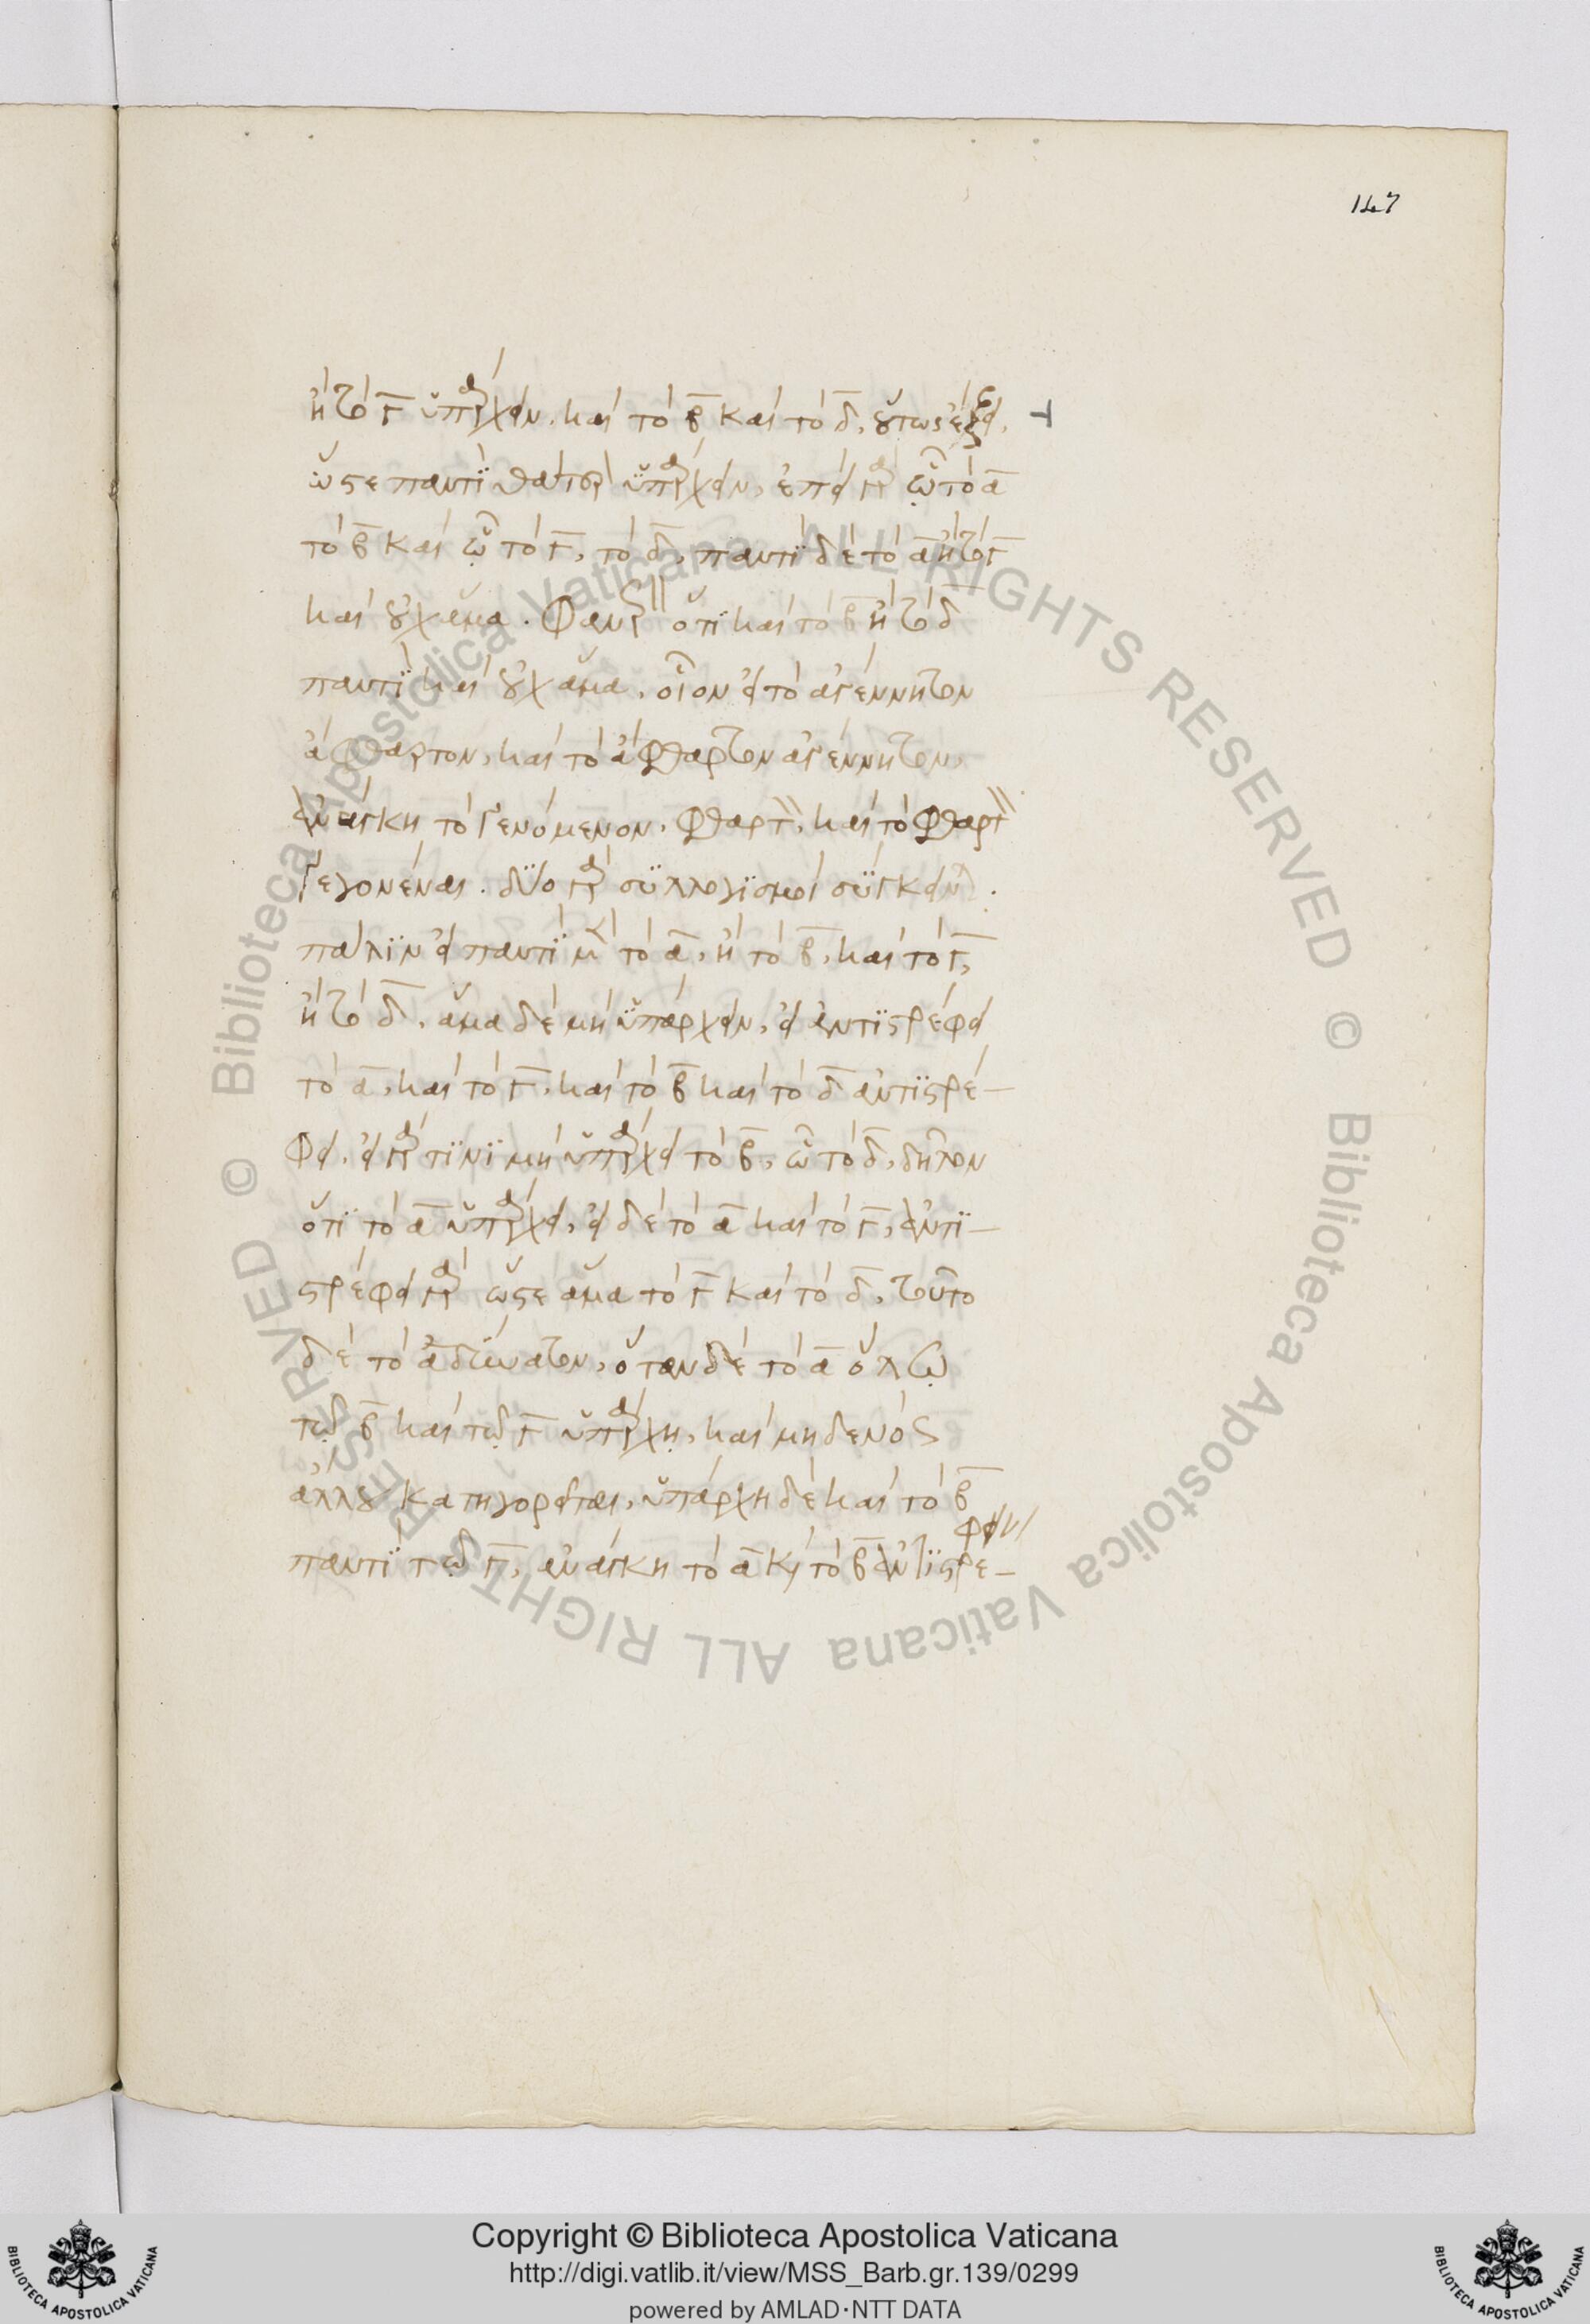 147
ἢ τὸ Γ ὑπάρχειν. καὶ τὸ Β καὶ τὸ Δ, οὕτως ἕξει,
ὥστε παντὶ θάτερον ὑπάρχειν, ἐπεὶ γὰρ ᾧ τὸ Α
τὸ Β καὶ ᾧ τὸ Γ, τὸ Δ, παντὶ δὲ τὸ Α ἢ τὸ Γ
καὶ οὐχ ἅμα. Φανερὸν ὅτι καὶ τὸ Β ἢ τὸ Δ
παντὶ καὶ οὐχ ἅμα, οἷον εἰ τὸ ἀγέννητον
ἄφθαρτον, καὶ τὸ ἄφθαρτον ἀγέννητον,
ἀνάγκη τὸ γενόμενον, φθαρτὸν, καὶ τὸ φθαρτὸν
γεγονέναι. δύο γὰρ συλλογισμοὶ σύγκεινται.
πάλιν εἰ παντὶ μὲν τὸ Α, ἢ τὸ Β, καὶ τὸ Γ,
ἢ τὸ Δ, ἅμα δὲ μὴ ὑπάρχειν, εἰ ἀντιστρέφει
τὸ Α, καὶ τὸ Γ, καὶ τὸ Β καὶ τὸ Δ ἀντιστρέ-
φει. εἰ γὰρ τινὶ μὴ ὑπάρχει τὸ Β, ᾧ τὸ Δ, δῆλον
ὅτι τὸ Α ὑπάρχει, εἰ δὲ τὸ Α καὶ τὸ Γ, ἀντι-
στρέφει γὰρ ὥστε ἅμα τὸ Γ καὶ τὸ Δ, τοῦτο
δὲ τὸ ἀδύνατον, ὅταν δὲ τὸ Α ὅλῳ
τῷ Β καὶ τῷ Γ ὑπάρχῃ, καὶ μηδενὸς
ἄλλου κατηγορεῖται, ὑπάρχη δὲ καὶ τὸ Β
παντὶ τῷ Γ, ἀνάγκη τὸ Α καὶ τὸ Β ἀντιστρέ-
φειν
Copyright © Biblioteca Apostolica Vaticana
http://digi.vatlib.it/view/MSS_Barb.gr.139/0299
powered by AMLAD·NTT DATA